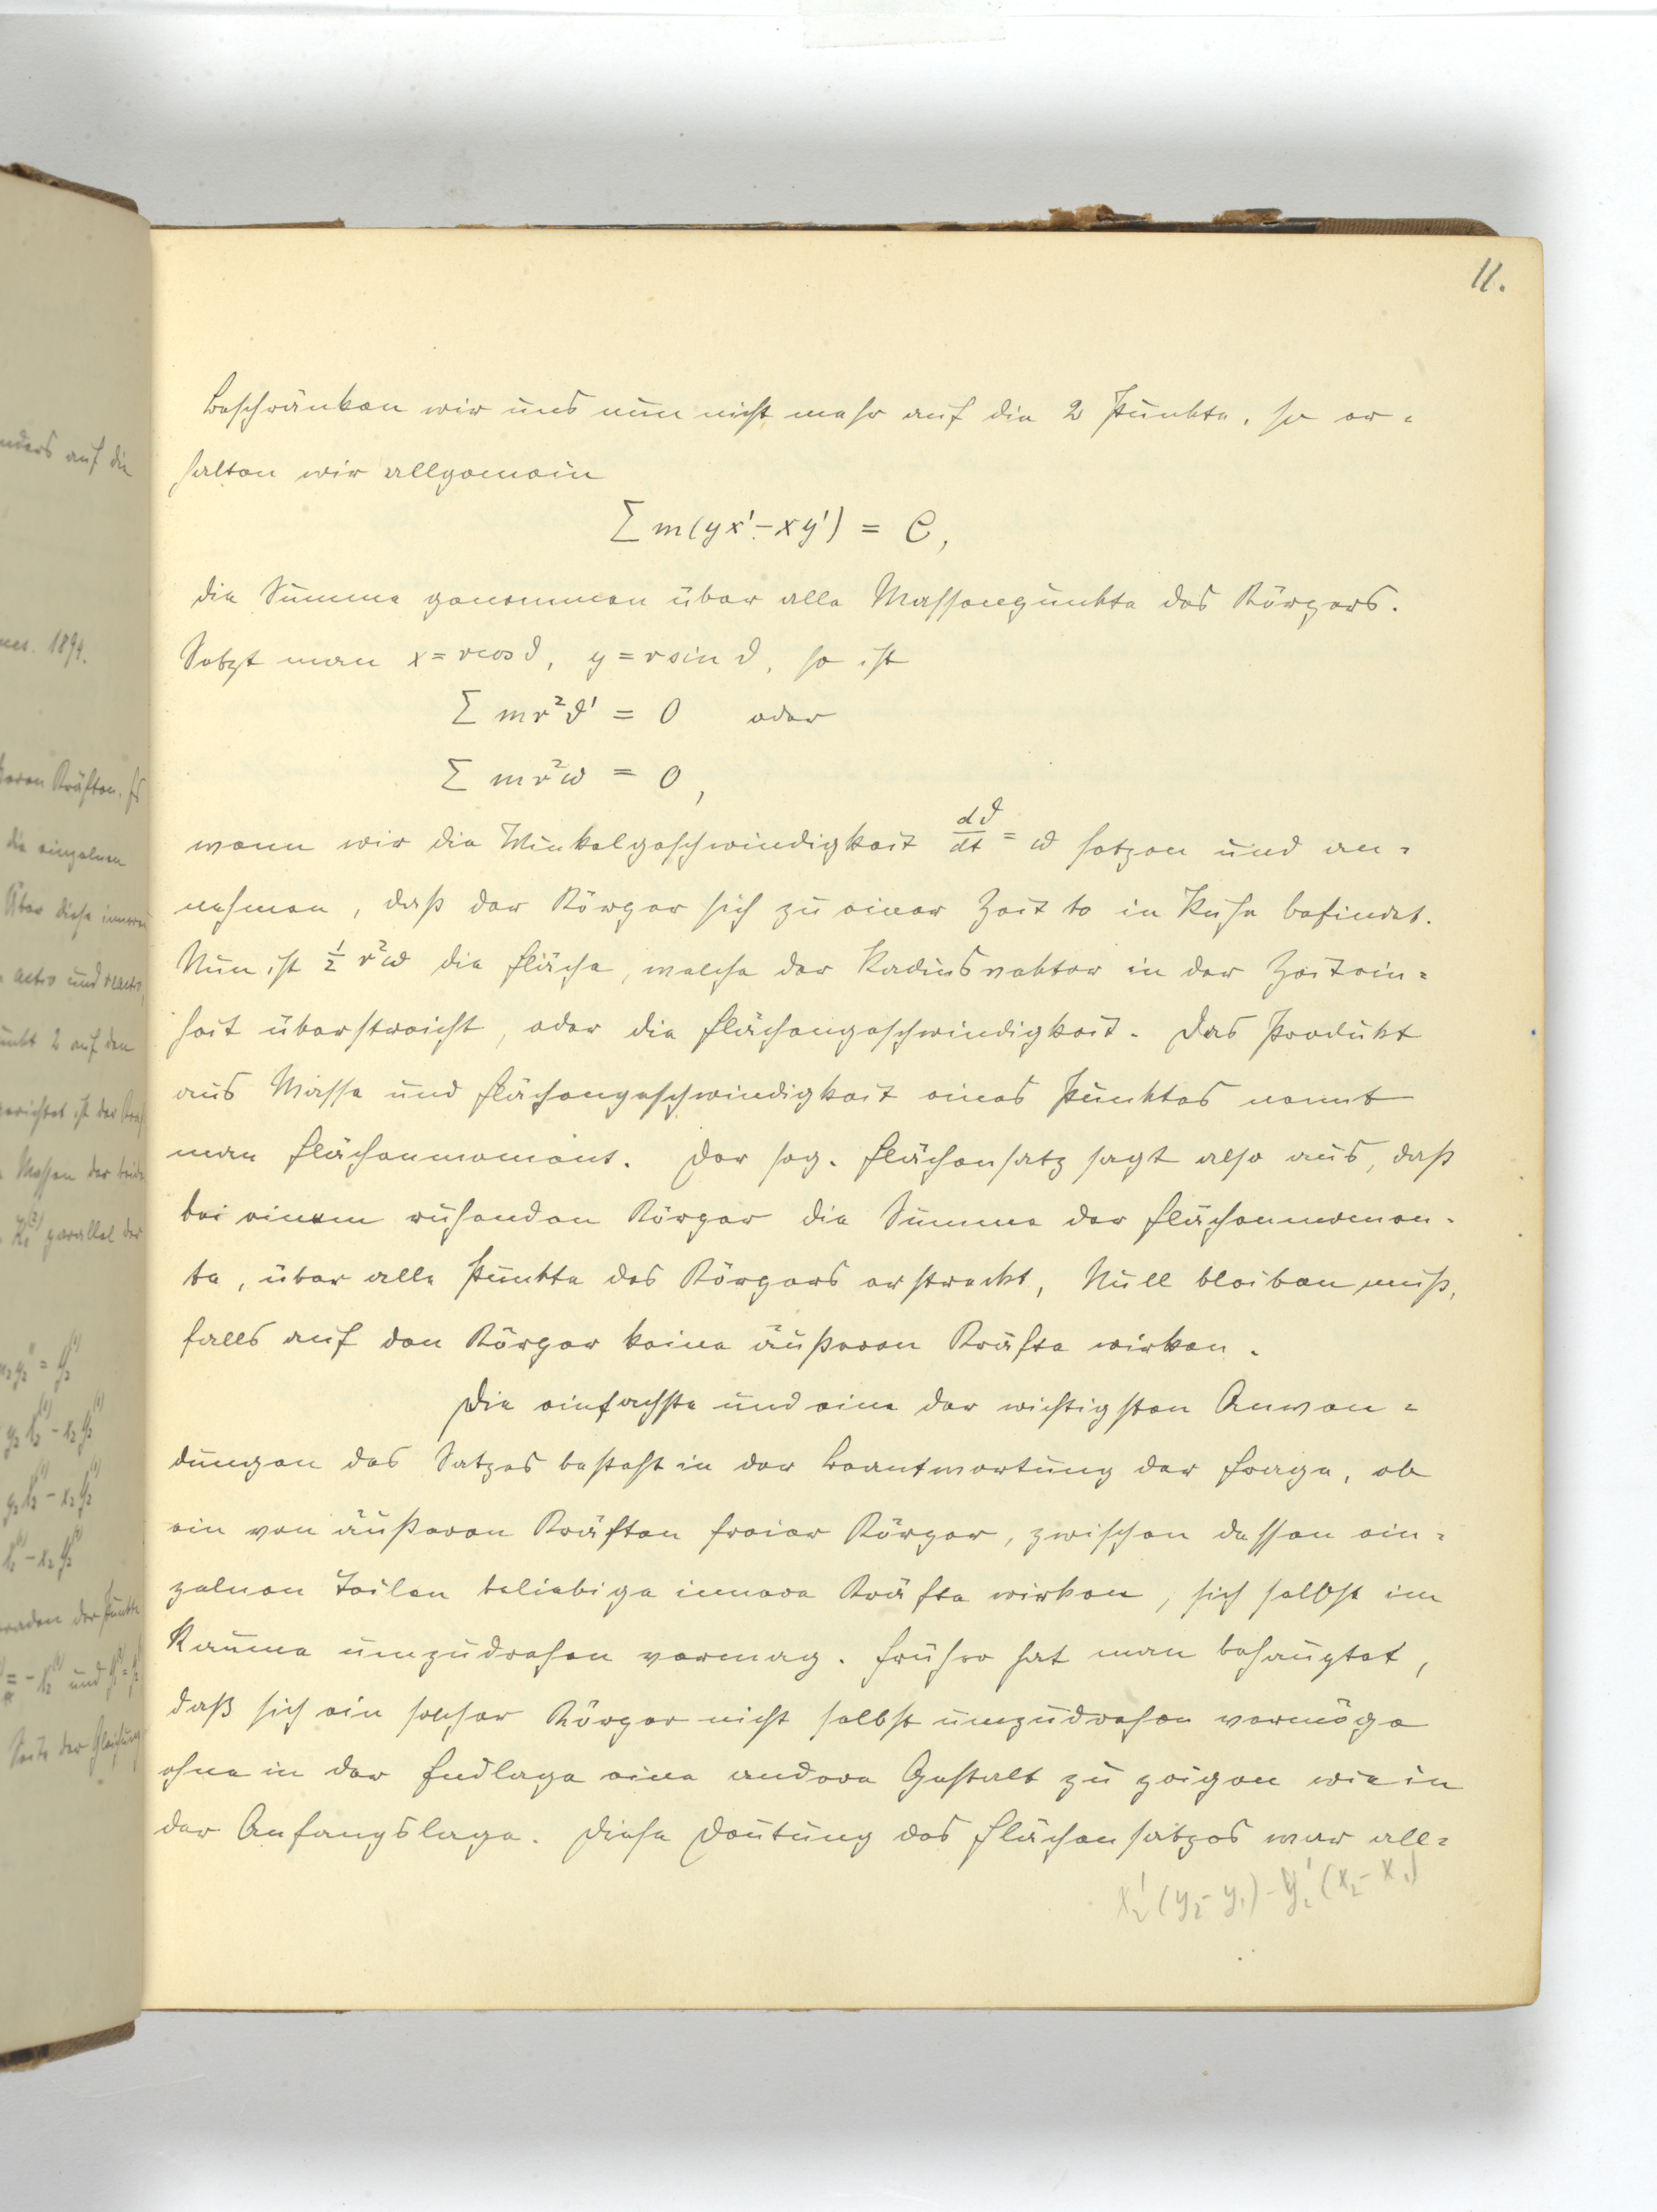 11.
Beschränken wir uns nun nicht mehr auf die 2 Punkte, so er=
halten wir allgemein
Σ m(yx'-xy') = C,
die Summe genommen über alle Massenpunkte des Körpers.
Setzt man x = r cos ϑ, y = r sin ϑ, so ist
Σ mr²ϑ' = 0 oder
Σ mr²ω = 0,
wenn wir die Winkelgeschwindigkeit dϑ/dt = ω setzen und an=
nehmen, daß der Körper sich zu einer Zeit t0 in Ruhe befindet.
Nun ist ½ r²ω die Fläche, welche der Radiusvektor in der Zeitein=
heit überstreicht, oder die Flächengeschwindigkeit. Das Produkt
aus Masse und Flächengeschwindigkeit eines Punktes nennt
man Flächenmoment. Der sog. Flächensatz sagt also aus, daß
bei einem ruhenden Körper die Summe der Flächenmomen-
te, über alle Punkte des Körpers erstreckt, Null bleiben muß,
falls auf den Körper keine äußeren Kräfte wirken.
Die einfachste und eine der wichtigsten Anwen=
dungen des Satzes besteht in der Beantwortung der Frage, ob
ein von äußeren Kräften freier Körper, zwischen dessen ein=
zelnen Teilen beliebige innere Kräfte wirken, sich selbst im
Raume umzudrehen vermag. Früher hat man behauptet,
daß sich ein solcher Körper nicht selbst umzudrehen vermöge
ohne in der Endlage eine andere Gestalt zu zeigen wie in
der Anfangslage. Diese Deutung des Flächensatzes war all=
x₂'(y₂-y₁)-y₂'(x₂-x₁)
nders auf die
1894.
die einzelnen
Über diese inneren
activ und react
unkt 2 auf den
gerichtet ist
Massen der beide
parallel der
Seite der Gleichung